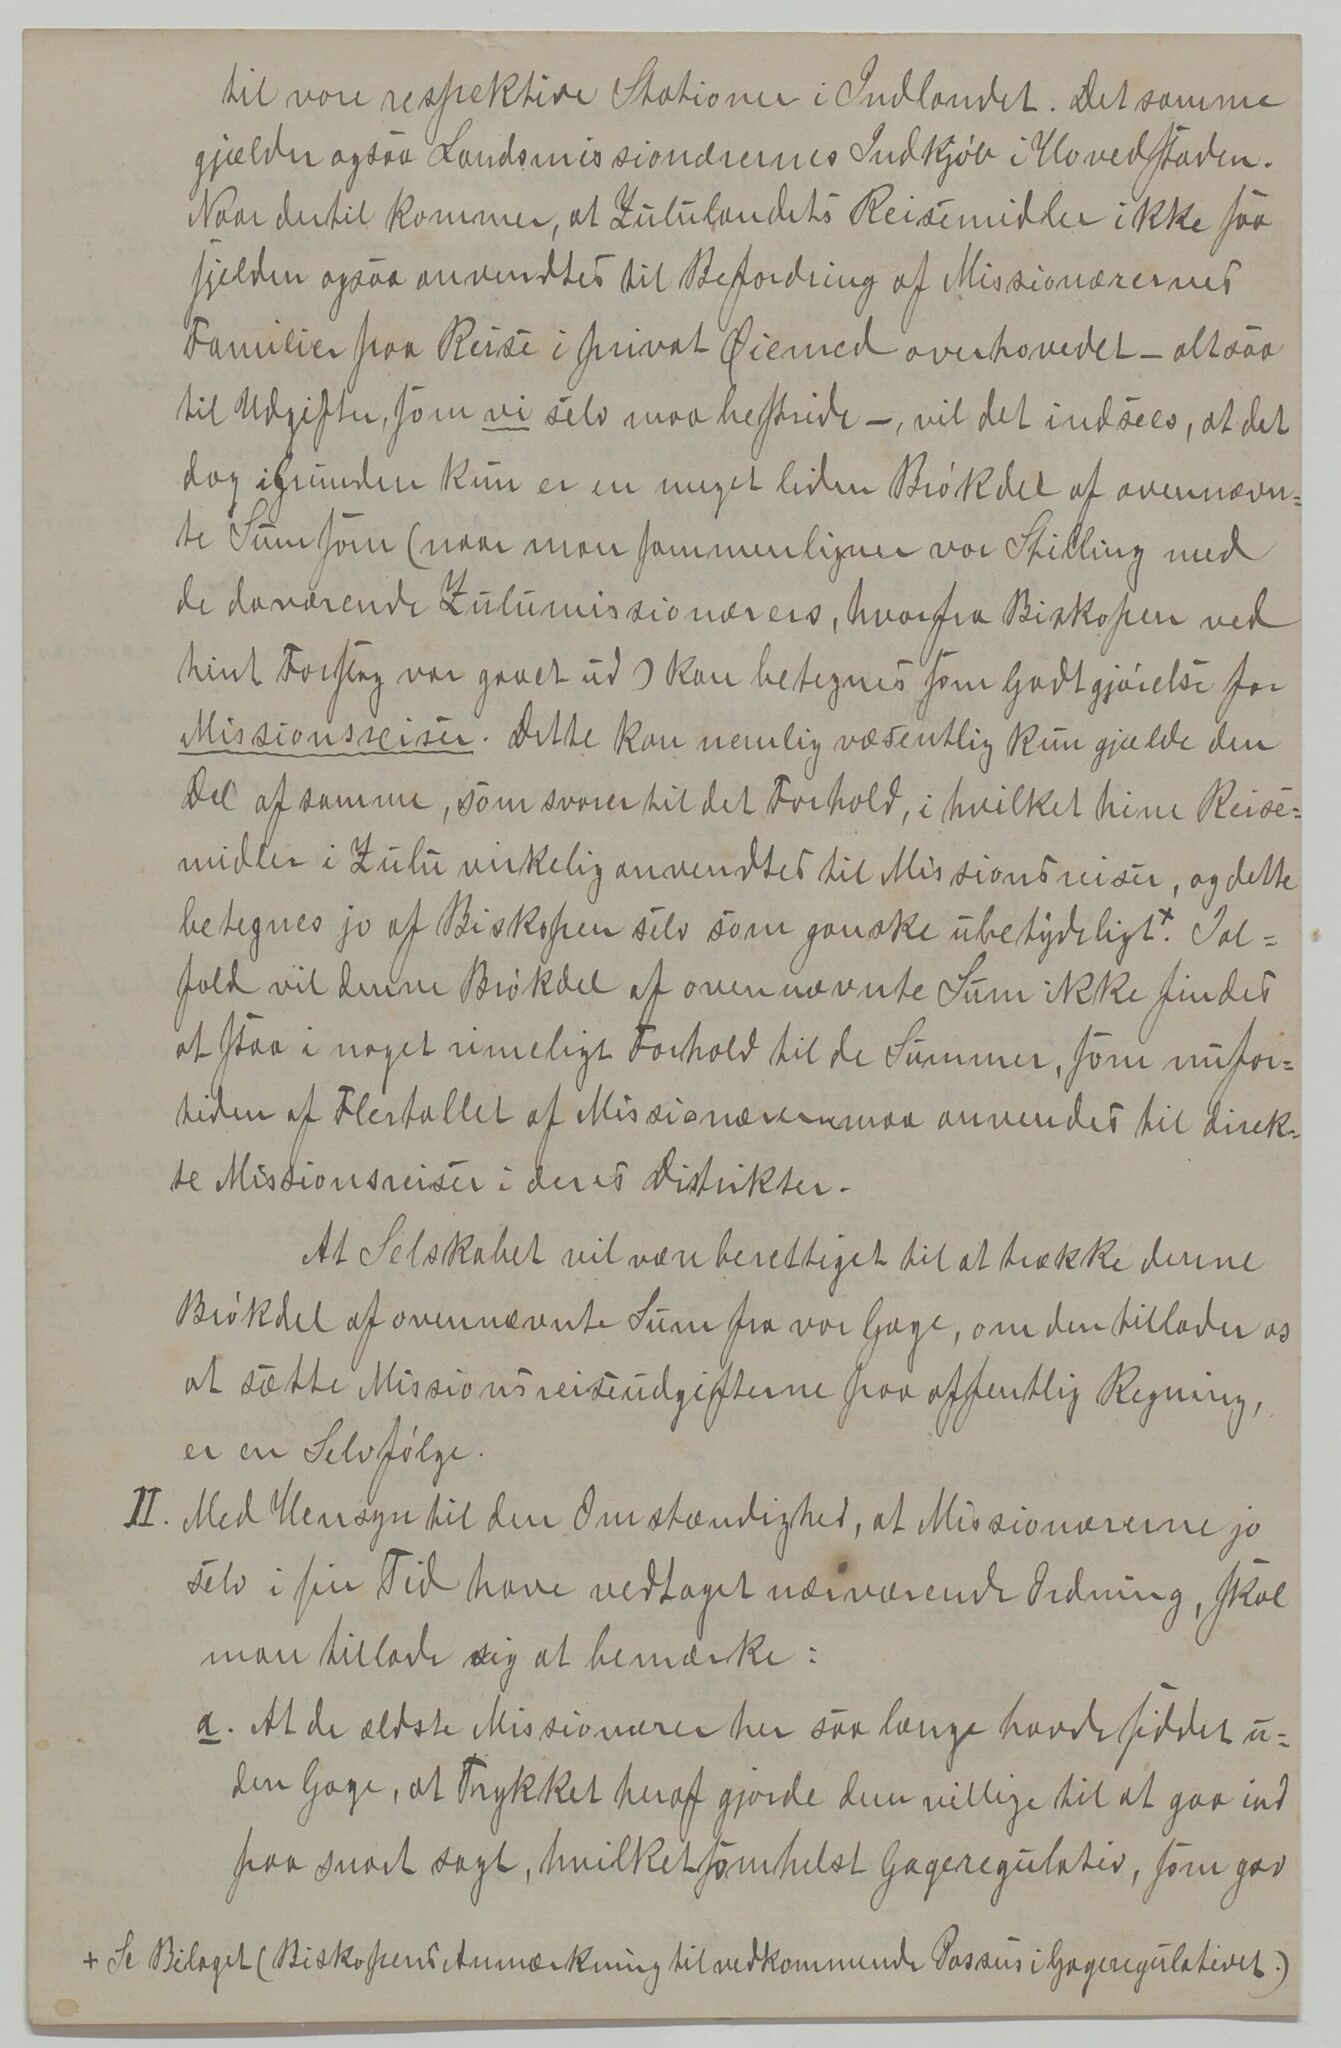 til vore respektive Stationer i Indlandet. Det samme
gjælder ogsaa Landsmissionærernes Indkjøb i Hovedstaden.
Naar dertil kommer, at Zululandets Reisemidler ikke saa
sjelden ogsaa anvendtes til Befordring af Missionærernes
Familier paa Reise i privat Øiemed overhovedet – altsaa
til Udgifter, som vi selv maa bestride –, vil det indsees, at det
dog i Grunden kun er en meget liden Brøkdel af ovennævn=
te Sum som (naar man sammenligner vor Stilling med
de daværende Zulumissionærers, hvorfra Biskopen ved
hint Forslag var gaaet ud) kan betegnes som Godtgjørelse for
Missionsreiser. Dette kan nemlig væsentlig kun gjælde den
Del af samme, som svarer til det Forhold, i hvilket hine Reise=
midler i Zulu virkelig anvendtes til Missionsreiser, og dette
betegnes jo af Biskopen selv som ganske ubetydeligt+. Ial=
fald vil denne Brøkdel af ovennævnte Sum ikke findes
at staa i noget rimeligt Forhold til de Summer, som nufor=
tiden af Flertallet af Missionærerne maa anvendes til direk=
te Missionsreiser i deres Distrikter.
At Selskabet vil være berettiget til at trække denne
Brøkdel af ovennævnte Sum fra vor Gage, om den tillader os
at sætte Missionsreiseudgifterne paa offentlig Regning,
er en Selvfølge.
II. Med Hensyn til den Omstændighed, at Missionærerne jo
selv i sin Tid have vedtaget nærværende Ordning, skal
man tillade sig at bemærke:
a. At de ældste Missionærer her saa længe havde siddet u=
den Gage, at Trykket heraf gjorde dem villige til at gaa ind
paa snart sagt, hvilketsomhelst Gageregulativ, som gav
+ Se Bilaget (Biskopens Anmærkning til vedkommende Passus i Gageregulativet.)